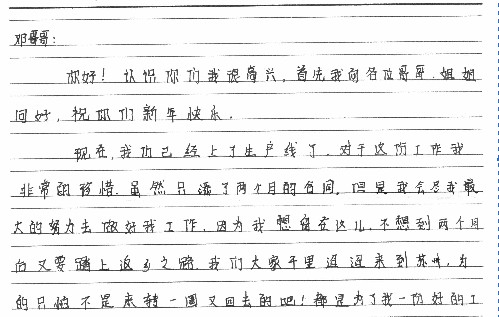 邓哥哥:
你好!认识你们我很高兴,首先我向各位哥哥、姐姐
问好,祝你们新年快乐。
现在,我们已经上了生产线了,对于这份工作我
非常的珍惜。虽然只添了两个月的合同,但是我会尽我最
大的努力去做好我工作,因为我想留在这儿,不想到两个月
后又要踏上返乡之路,我们大家千里迢迢来到苏州,为
的只怕不是来转一圈又回去的吧!都是为了找一份好的工